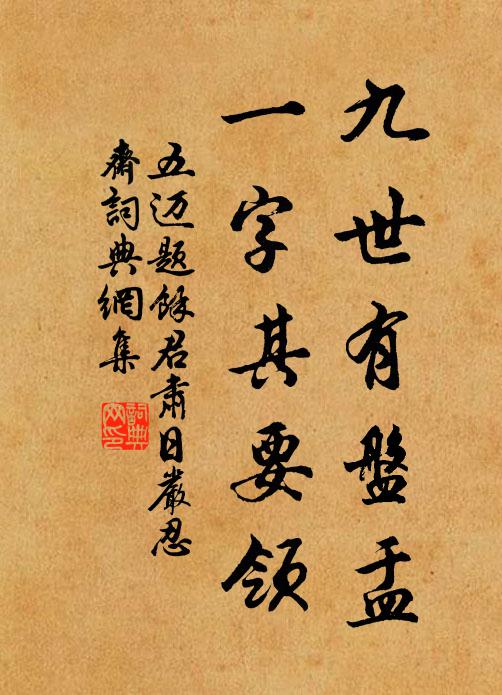 九世有盤盂
一字其要領
五迈题餘君肅日嚴忍
齋詞典網集
詞典網印